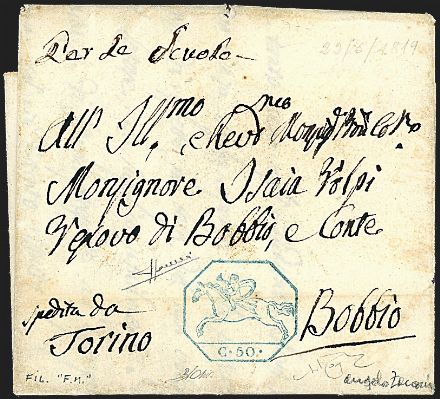 Per le Scuole
22/6/1819
All' Ill.mo e Rev.mo
Monsignore Isaia Volpi
Vescovo di Bobbio, e Conte
spedita da
Torino
C. 50.
Bobbio
FIL. "F.M."